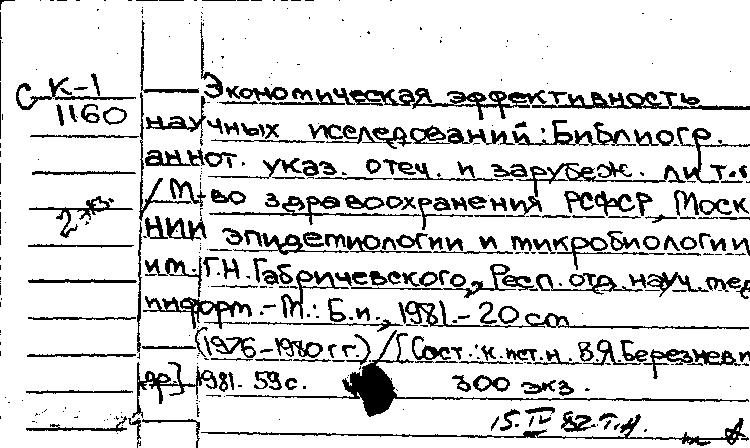 С К-1 Экономическая эффективность
1160 научных иследований: Библиогр.
аннот. указ. отеч. и зарубеж. лит-
2 экз. / М-во здравоохранения РСФСР, Моск
НИИ эпидемиологии и микробиологии
им. Г.Н. Габричевского, Респ. отд. науч. мед
информ. - М.: Б.и., 1981. - 20 cm
(1976-1980 гг.) / [Сост.: к.ист.н. В.Я. Березнев и
др.] 1981. 59 с. 300 экз.
15.IV 82. Т.А.